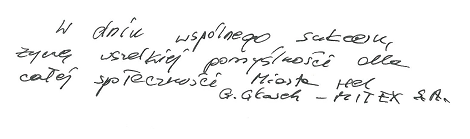 W dniu wspólnego sukcesu,
życzę wszelkiej pomyślności dla
całej społeczności Miasta Hel
G. Głasek - MITEX S.A.